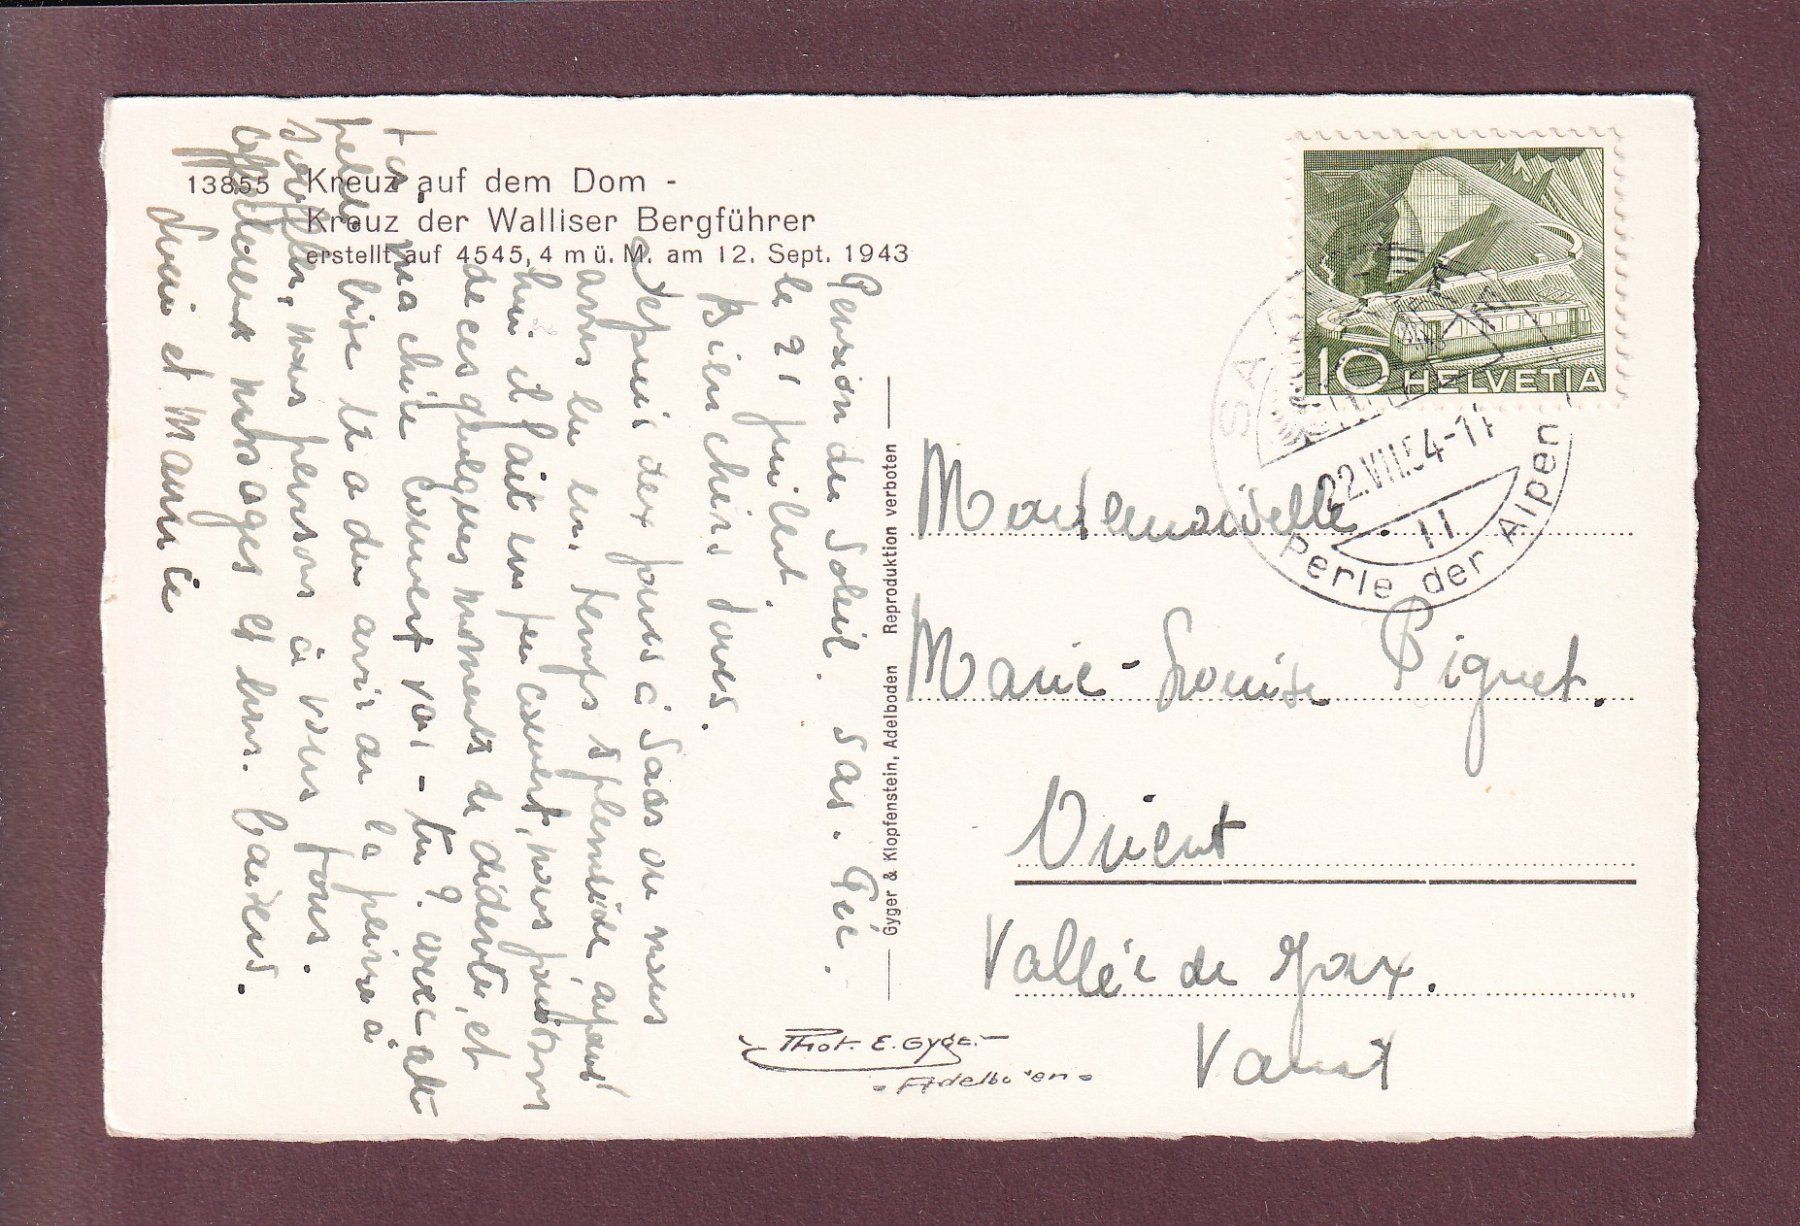 13855 Kreuz auf dem Dom -
Kreuz der Walliser Bergführer
erstellt auf 4545,4 m ü. M. am 12. Sept. 1943
Pension du Soleil. Sas. Fée.
le 21 juillet.
Bien chers tous.
depuis dex jours à Saas où nous
avons eu un temps splendide, aujourd
hui il fait un peu couvert, nous jouissons
de ces quelques moments de détente, et
ma chère comment vas-tu? avec cette
bise tu a du avoir de la peine à
souffler, nous pensons à vous tous.
affectueux messages et bons baisers.
et Maurice
Gyger & Klopfenstein, Adelboden Reproduktion verboten
Phot. E. Gyger
- Adelboden -
10 HELVETIA
SA
22.VII.54-11
II
Perle der Alpen
Mademoiselle
Marie-Louise Piguet.
Orient
Vallée de Joux.
Vaud